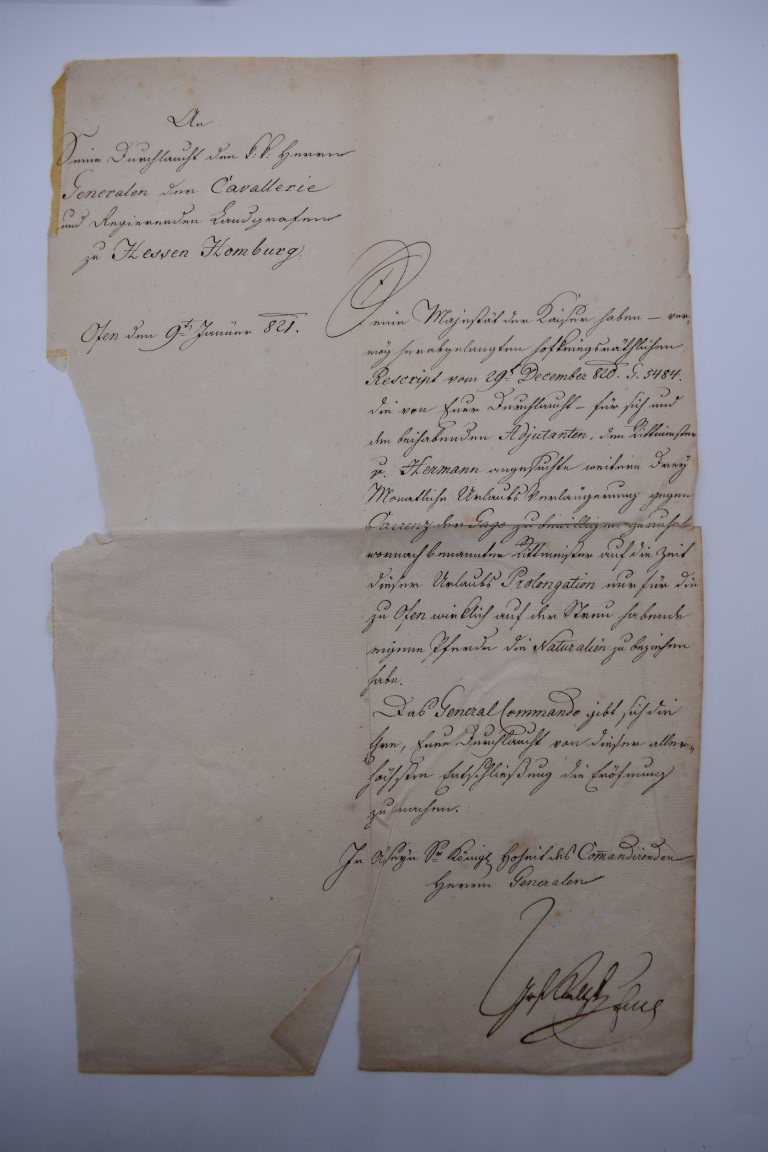 An
Seine Durchlaucht den k: k: Herrn
Generalen der Cavallerie
und Regierenden Landgrafen
zu Hessen Homburg.
Ofen den 9t Januer 821.
Seine Majestät der Kaiser haben – ver-
mög herabgelangten hofkriegsräthlichen
Rescript vom 29t December 820. G. 5484.
die von Euer Durchlaucht – für sich und
den beihabenden Adjutanten, den Rittmeister
v. Hermann angesuchte weitere Drey
Monatliche Urlaubs Verlängerung gegen
Carenz der Gage zu bewilligen geruht,
wornach benannter Rittmeister auf die Zeit
dieser Urlaubs Prolongation nur für die
zu Ofen wirklich auf der Streu habende
eigene Pferde die Naturalien zu beziehen
habe.
Das General Commando gibt sich die
Ehre, Euer Durchlaucht von dieser aller-
höchsten Entschließung die Eröfnung
zu machen.
In Abseyn Sr Königl Hoheit des Comandirenden
Herrn Generalen